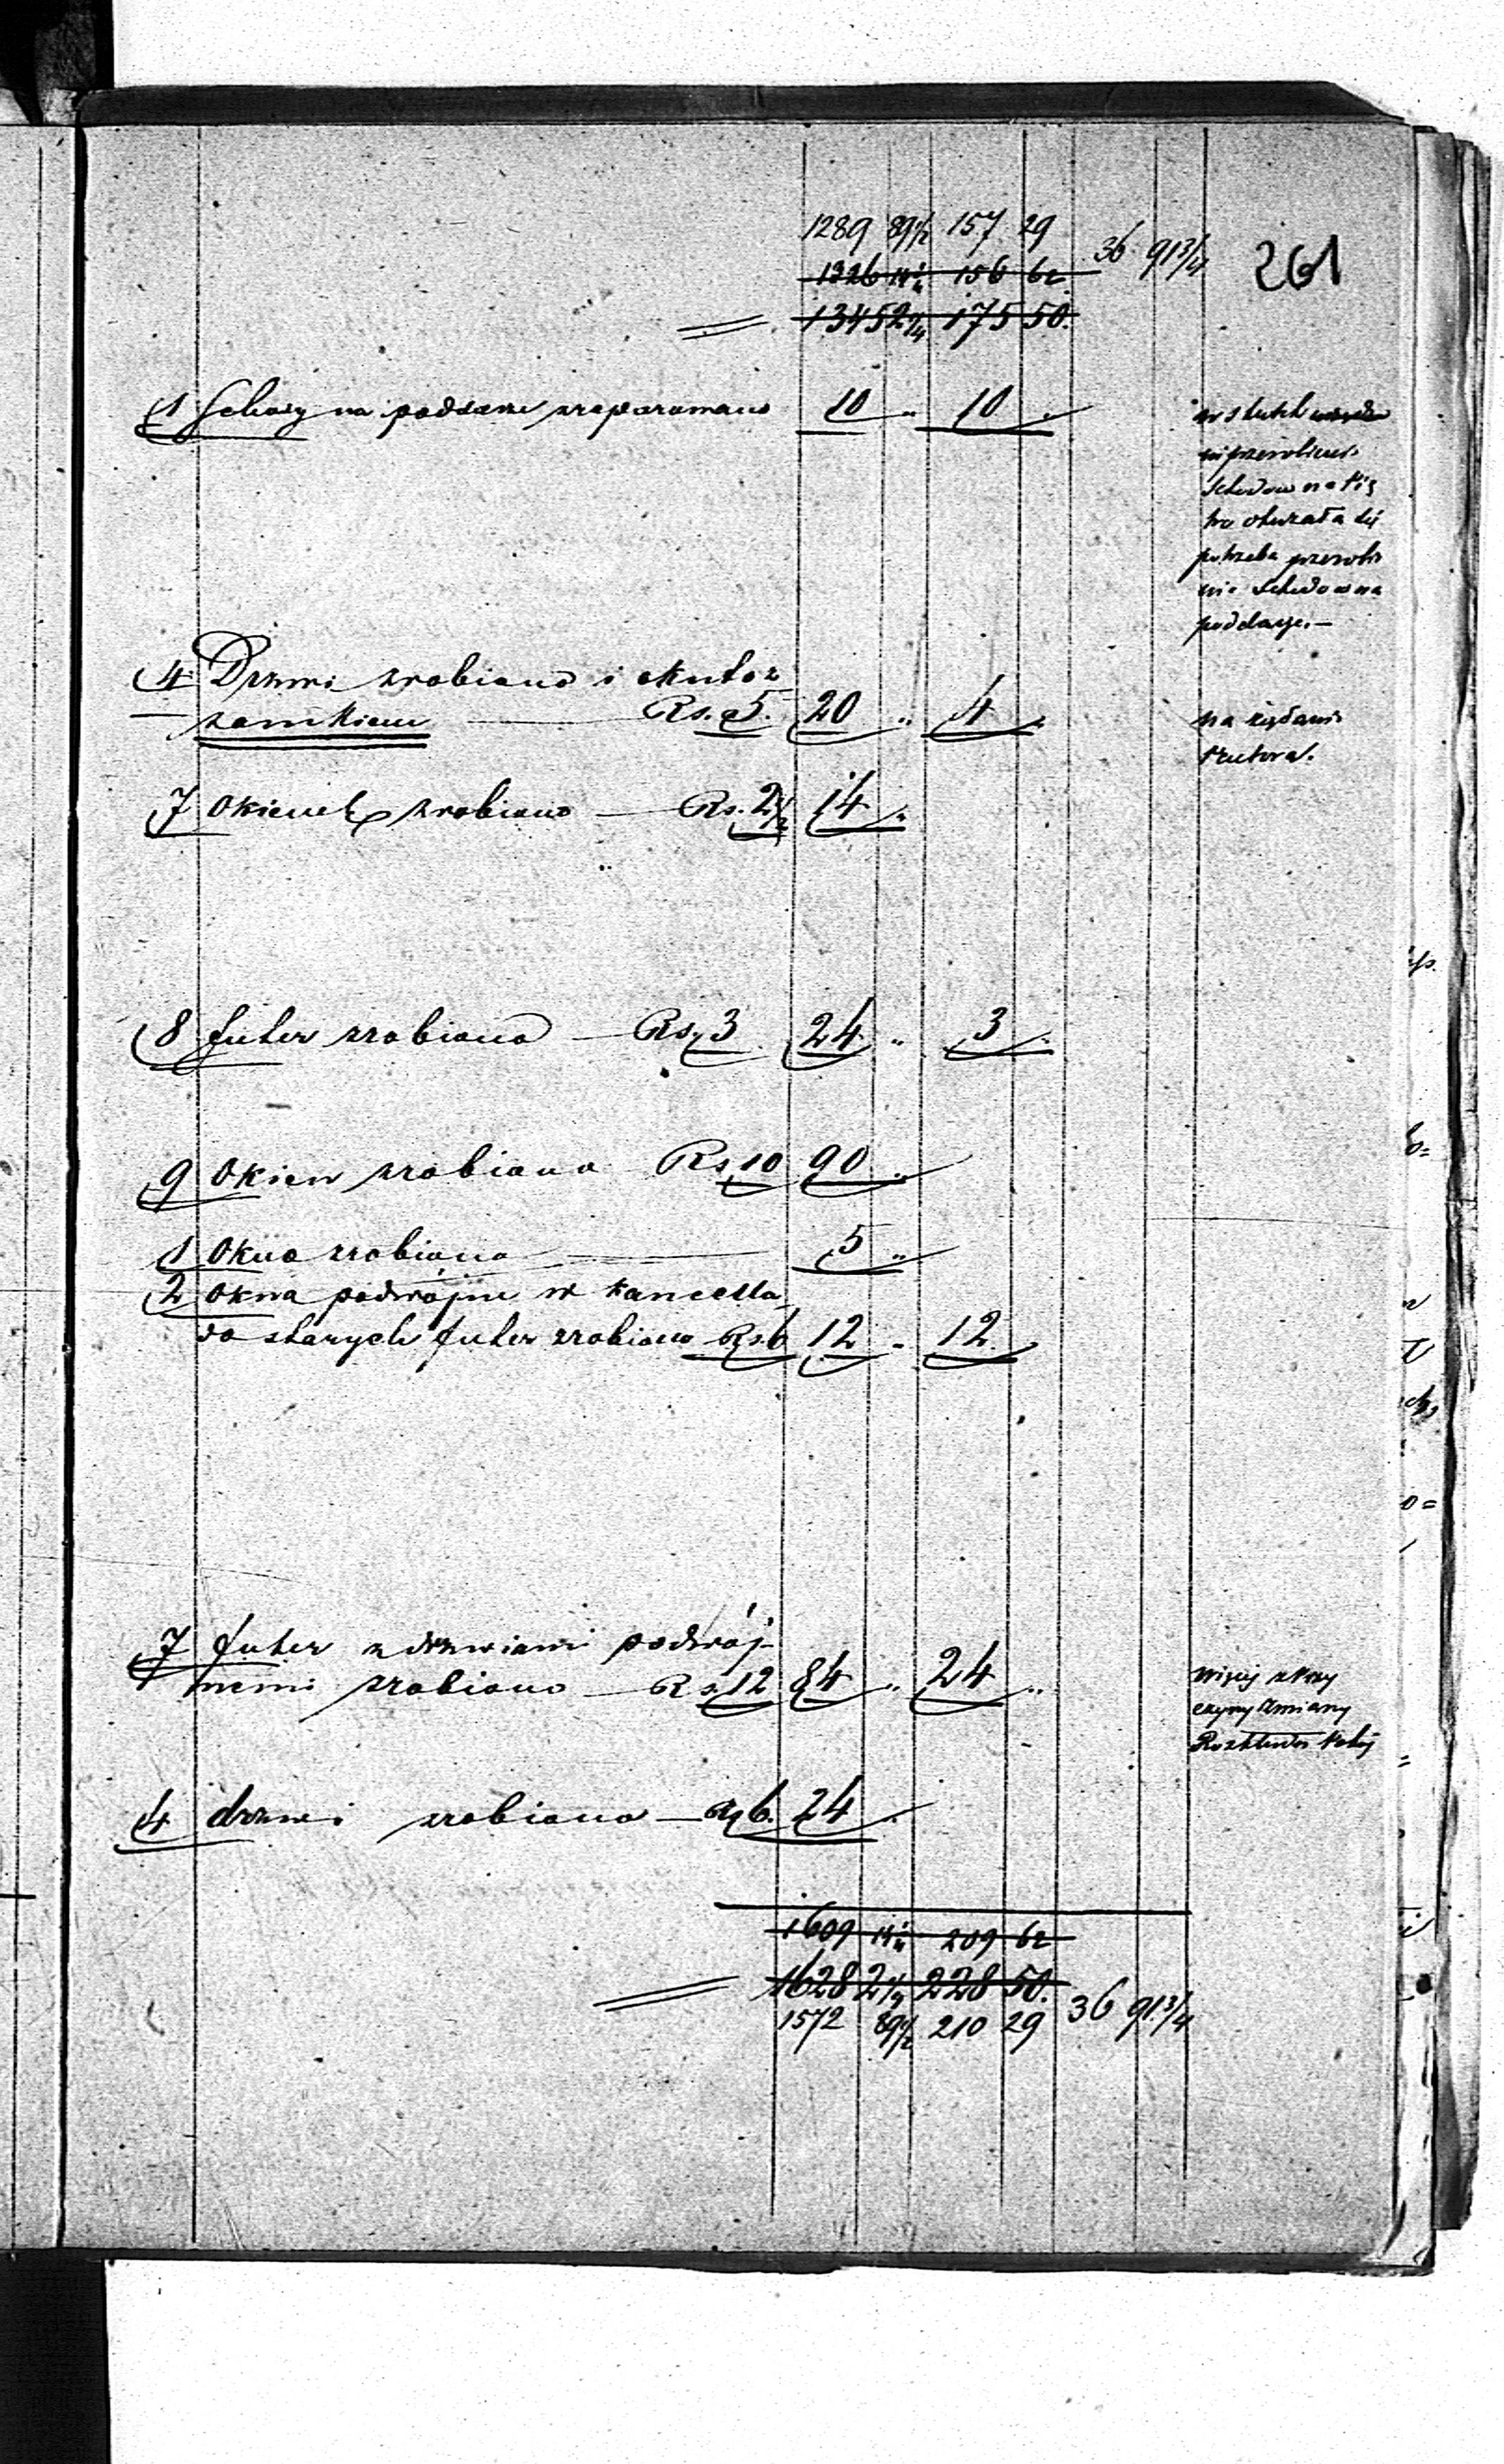 1289 89½ 157 29
36 91¾
261
1326 14¼ 156 62
1345 2¼ 175 50.
1 Schody na poddasze zreparowano 10 „ 10 „
w skutek
schodów na pię
tro okazała się
potrzeba przerobie
nia schodów na
poddasze. —
4 Drzwi zrobiono i okuto z
zamkiem — Rs. a 5. 20 „ 4 „
na żądanie
7 okienek zrobiono — Rs. 2½ 14 „
8 futer zrobiono — Rs. 3 24 „ 3 „
9 Okien zrobiono Rs 10 90 „
1 Okno zrobiono — 5 „
2 okna podwójne w kancella
do starych futer zrobiono Rs. 6 12 „ 12 „
7 futer z drzwiami podwój-
nemi zrobiono — Rs. 12 84 „ 24 „
więcej z przy
czyny zmiany
4 drzwi zrobiono — Rs 6. 24 „
1609 14¼ 209 62
1628 2¼ 228 50.
1572 89½ 210 29 36 91¾